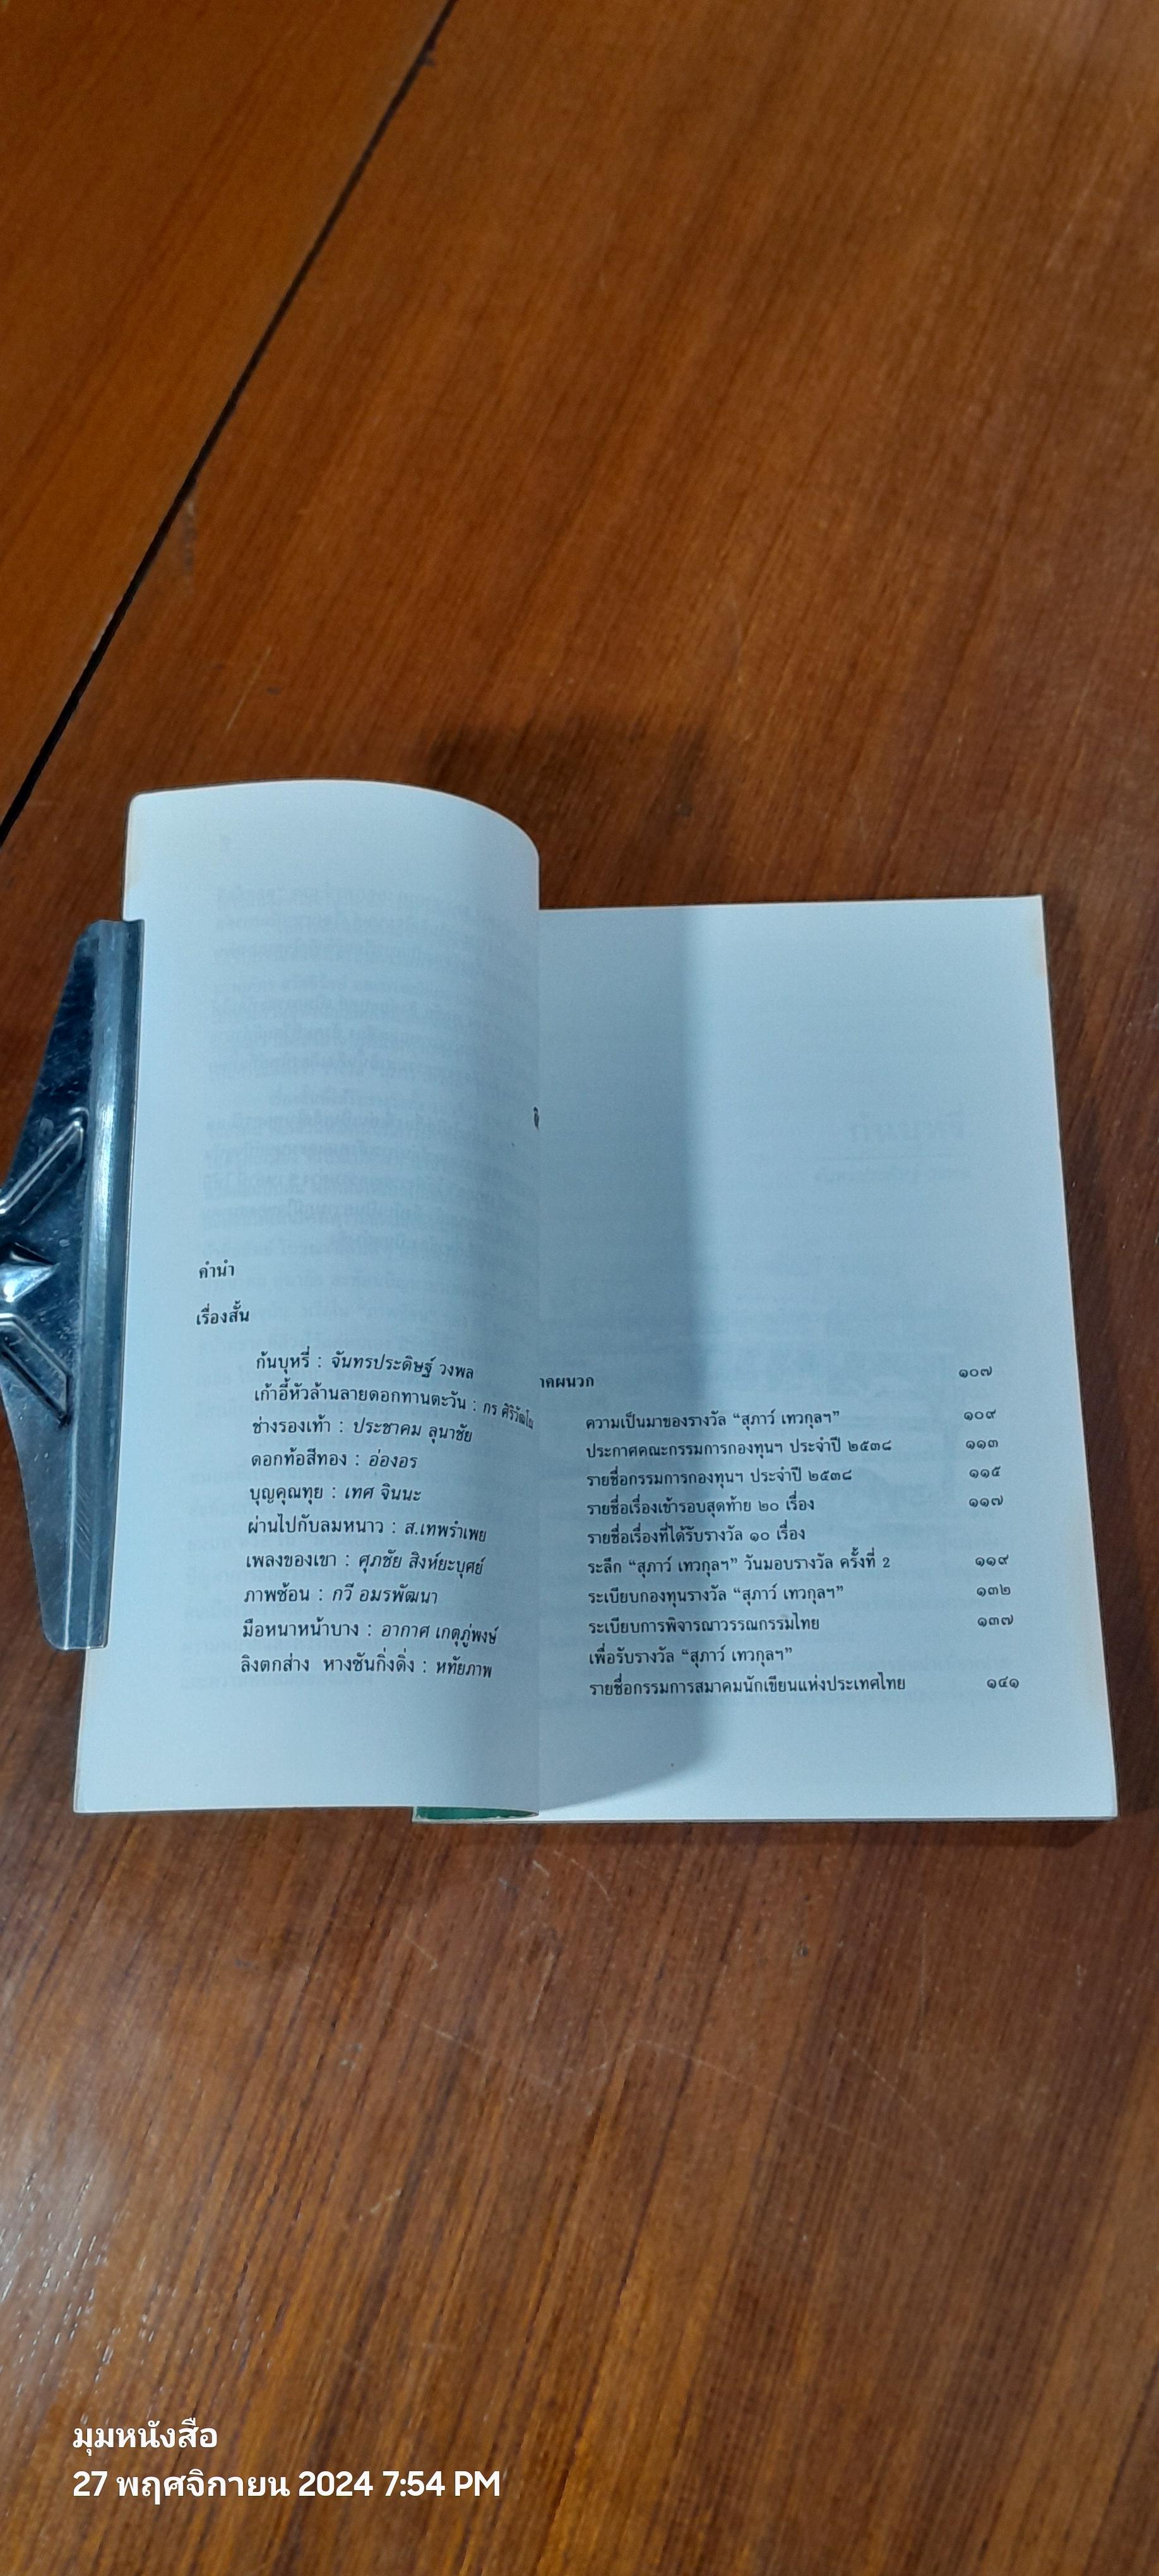 คำนำ
เรื่องสั้น
ก้นบุหรี่ : จันทรประดิษฐ์ วงพล
เก้าอี้หัวล้านลายดอกทานตะวัน : กร
ช่างรองเท้า : ประชาคม ลุนาชัย
ดอกท้อสีทอง : อ่องอร
บุญคุณทุย : เทศ จินนะ
ผ่านไปกับลมหนาว : ส.เทพรำเพย
เพลงของเขา : ศุภชัย สิงห์ยะบุศย์
ภาพซ้อน : กวี อมรพัฒนา
มือหนาหน้าบาง : อากาศ เกตุภู่พงษ์
ลิงตกส่าง หางชันกิ่งดิ่ง : หทัยภาพ
าคผนวก ๑๐๗
ความเป็นมาของรางวัล “สุภาว์ เทวกุลฯ” ๑๐๙
ประกาศคณะกรรมการกองทุนฯ ประจำปี ๒๕๓๘ ๑๑๓
รายชื่อกรรมการกองทุนฯ ประจำปี ๒๕๓๘ ๑๑๕
รายชื่อเรื่องเข้ารอบสุดท้าย ๒๐ เรื่อง ๑๑๗
รายชื่อเรื่องที่ได้รับรางวัล ๑๐ เรื่อง
ระลึก “สุภาว์ เทวกุลฯ” วันมอบรางวัล ครั้งที่ 2 ๑๑๙
ระเบียบกองทุนรางวัล “สุภาว์ เทวกุลฯ” ๑๓๒
ระเบียบการพิจารณาวรรณกรรมไทย ๑๓๗
เพื่อรับรางวัล “สุภาว์ เทวกุลฯ”
รายชื่อกรรมการสมาคมนักเขียนแห่งประเทศไทย ๑๔๑
มุมหนังสือ
27 พฤศจิกายน 2024 7:54 PM